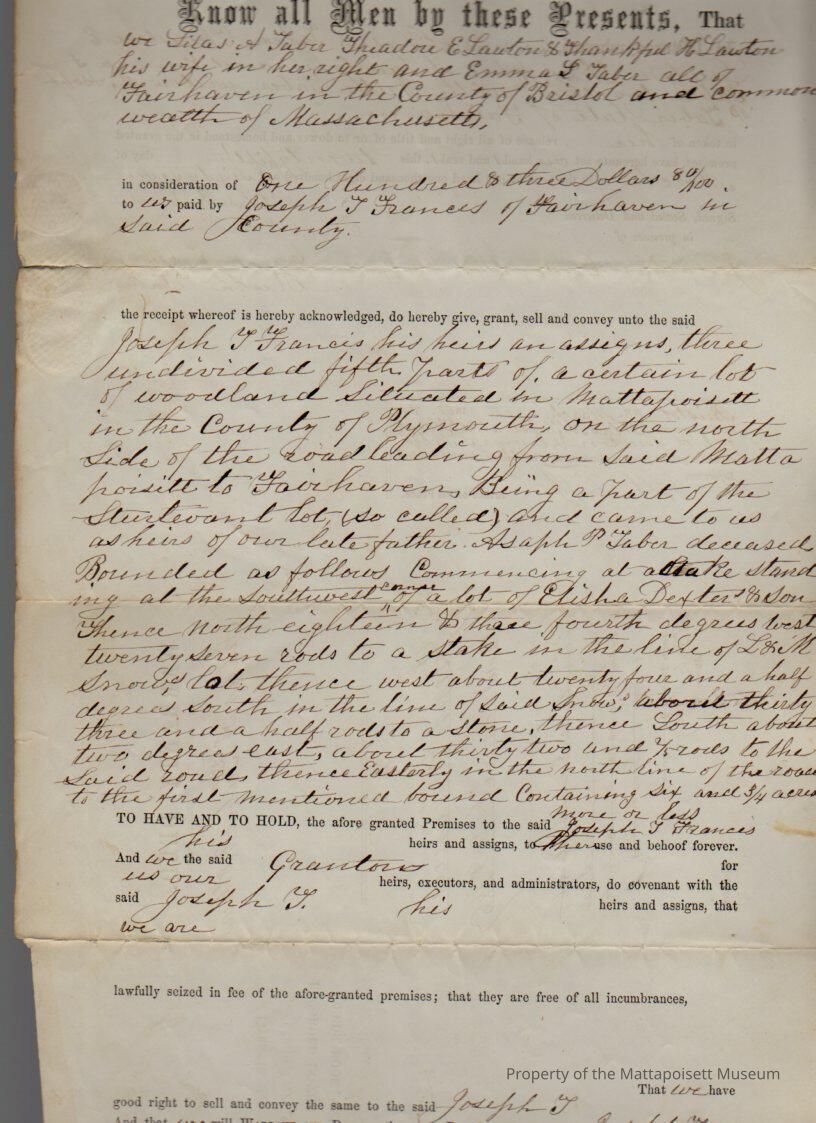 Know all Men by these Presents, That
we Silas A Taber Theadore E Lawton & Thankful H Lawton
his wife in her right and Emma S Taber all of
Fairhaven in the County of Bristol and common
wealth of Massachusetts,
in consideration of One Hundred & three Dollars 80/100.
to us paid by Joseph T Frances of Fairhaven in
said County.
the receipt whereof is hereby acknowledged, do hereby give, grant, sell and convey unto the said
Joseph T Francis his heirs an assigns, three
undivided fifth parts of, a certain lot
of woodland Situated in Mattapoisett
in the County of Plymouth, on the north
Side of the road leading from said Matta
poisett to Fairhaven, Being a part of the
Sturtevant lot, (so called) and came to us
as heirs of our late father Asaph P Taber deceased
Bounded as follows Commencing at a stake stand
ing at the Southwest corner of a lot of Elisha Dexters & Son
Thence North eighteen & three fourth degrees west
twenty seven rods to a stake in the line of L & M
Snow,s lot, thence west about twenty four and a half
degrees South in the line of said Snow,s about thirty
three and a half rods to a stone, thence South about
two degrees east, about thirty two and rods to the
Said road, thence Easterly in the north line of the road
to the first mentioned bound Containing Six and 3/4 acres
more or less
TO HAVE AND TO HOLD, the afore granted Premises to the said Joseph T Francis
his heirs and assigns, to their use and behoof forever.
And we the said Grantors for
us our heirs, executors, and administrators, do covenant with the
said Joseph T. his heirs and assigns, that
we are
lawfully seized in fee of the afore-granted premises; that they are free of all incumbrances,
Property of the Mattapoisett Museum
That we have
good right to sell and convey the same to the said Joseph T
And that we will